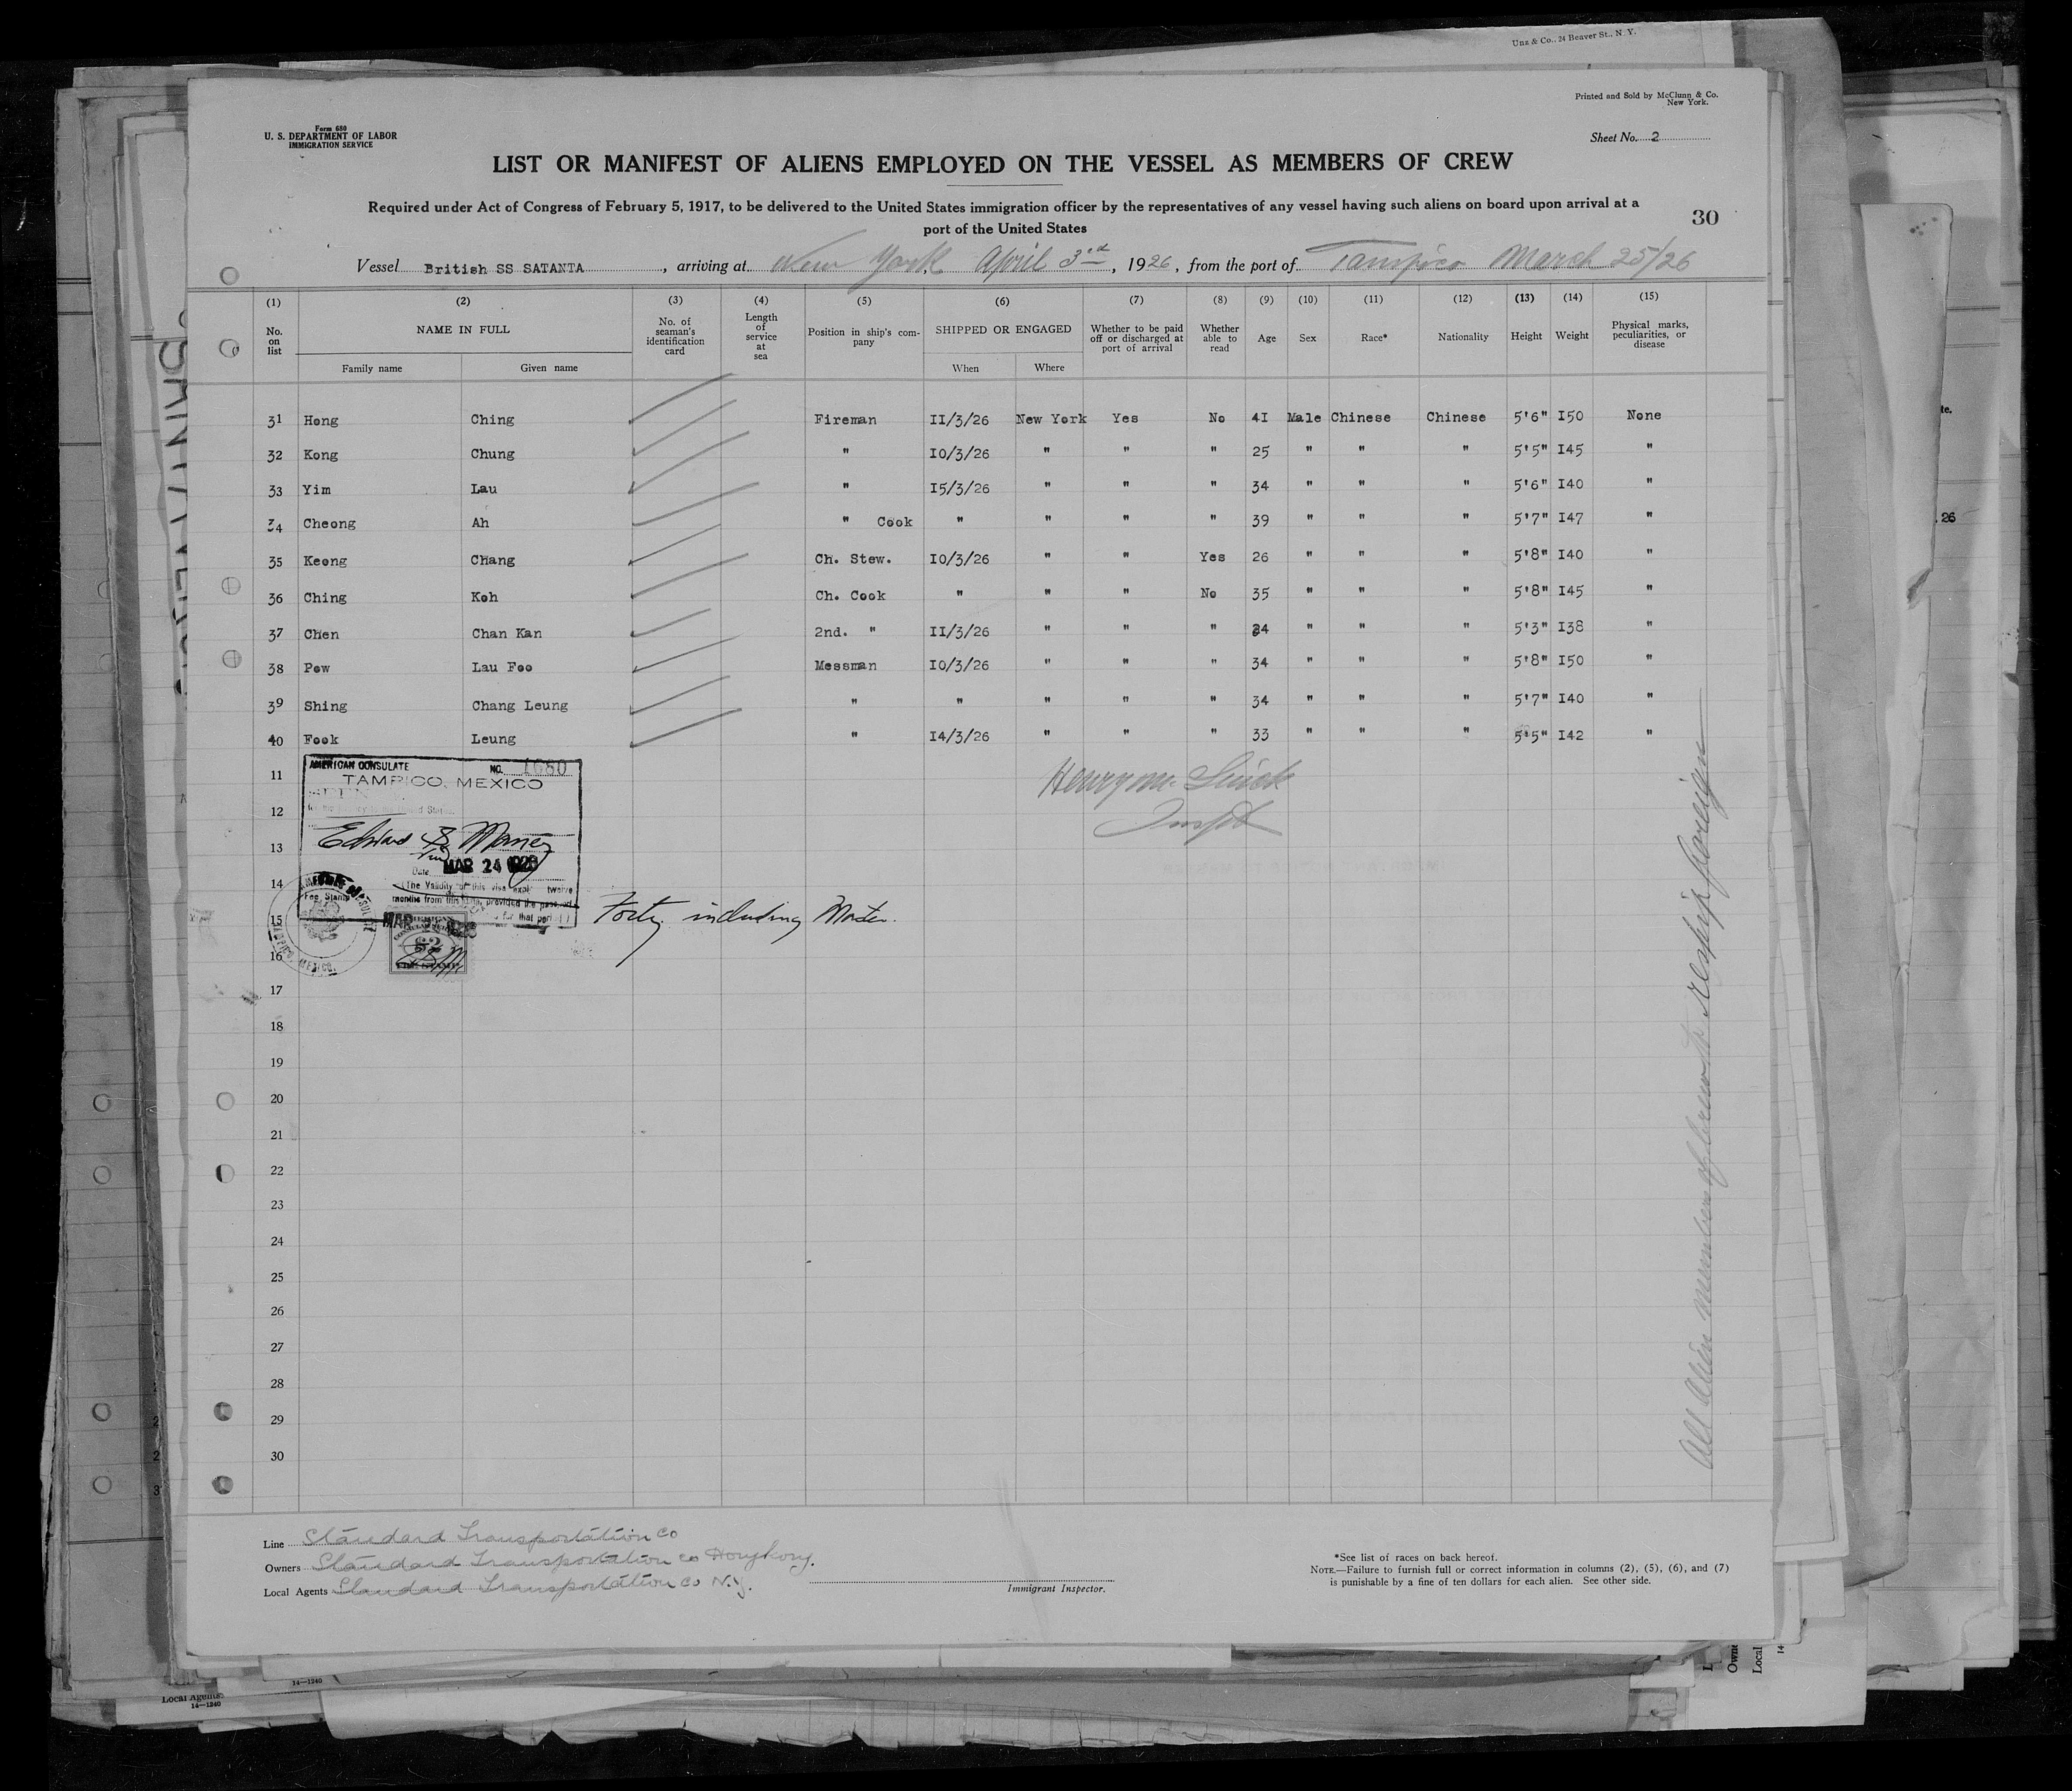 Unz & Co., 24 Beaver St., N. Y.
Printed and Sold by McClunn & Co.
New York.
Form 680
U. S. DEPARTMENT OF LABOR
IMMIGRATION SERVICE
Sheet No. 2
LIST OR MANIFEST OF ALIENS EMPLOYED ON THE VESSEL AS MEMBERS OF CREW
Required under Act of Congress of February 5, 1917, to be delivered to the United States immigration officer by the representatives of any vessel having such aliens on board upon arrival at a
port of the United States
30
Vessel British SS SATANTA, arriving at New York April 3rd, 1926, from the port of Tampico March 25/26
(1) (2) (3) (4) (5) (6) (7) (8) (9) (10) (11) (12) (13) (14) (15)
No. on list NAME IN FULL No. of seaman's identification card Length of service at sea Position in ship's company SHIPPED OR ENGAGED Whether to be paid off or discharged at port of arrival Whether able to read Age Sex Race* Nationality Height Weight Physical marks, peculiarities, or disease
Family name Given name When Where
31 Hong Ching Fireman II/3/26 New York Yes No 4I Male Chinese Chinese 5'6" I50 None
32 Kong Chung " I0/3/26 " " " 25 " " " 5'5" I45 "
33 Yim Lau " I5/3/26 " " " 34 " " " 5'6" I40 "
34 Cheong Ah " Cook " " " " 39 " " " 5'7" I47 "
35 Keong Chang Ch. Stew. I0/3/26 " " Yes 26 " " " 5'8" I40 "
36 Ching Koh Ch. Cook " " " No 35 " " " 5'8" I45 "
37 Chen Chan Kan 2nd. " II/3/26 " " " 34 " " " 5'3" I38 "
38 Pow Lau Foo Messman I0/3/26 " " " 34 " " " 5'8" I50 "
39 Shing Chang Leung " " " " " 34 " " " 5'7" I40 "
40 Fook Leung " I4/3/26 " " " 33 " " " 5'5" I42 "
AMERICAN CONSULATE NO. 1680
TAMPICO, MEXICO
11
12
13
Edward
Date MAR 24
14
The Validity of this visa twelve
months from this provided the
Fee Stamp
for that period
15
Forty including Master.
16
MEXICO.
17
18
19
20
21
22
23
24
25
26
27
28
29
30
All alien members of crew to reship foreign
Line Standard Transportation Co
Owners Standard Transportation Co Hongkong.
Local Agents Standard Transportation Co N.Y.
Immigrant Inspector.
*See list of races on back hereof.
NOTE.—Failure to furnish full or correct information in columns (2), (5), (6), and (7)
is punishable by a fine of ten dollars for each alien. See other side.
Local Agents
14—1240
14—1240